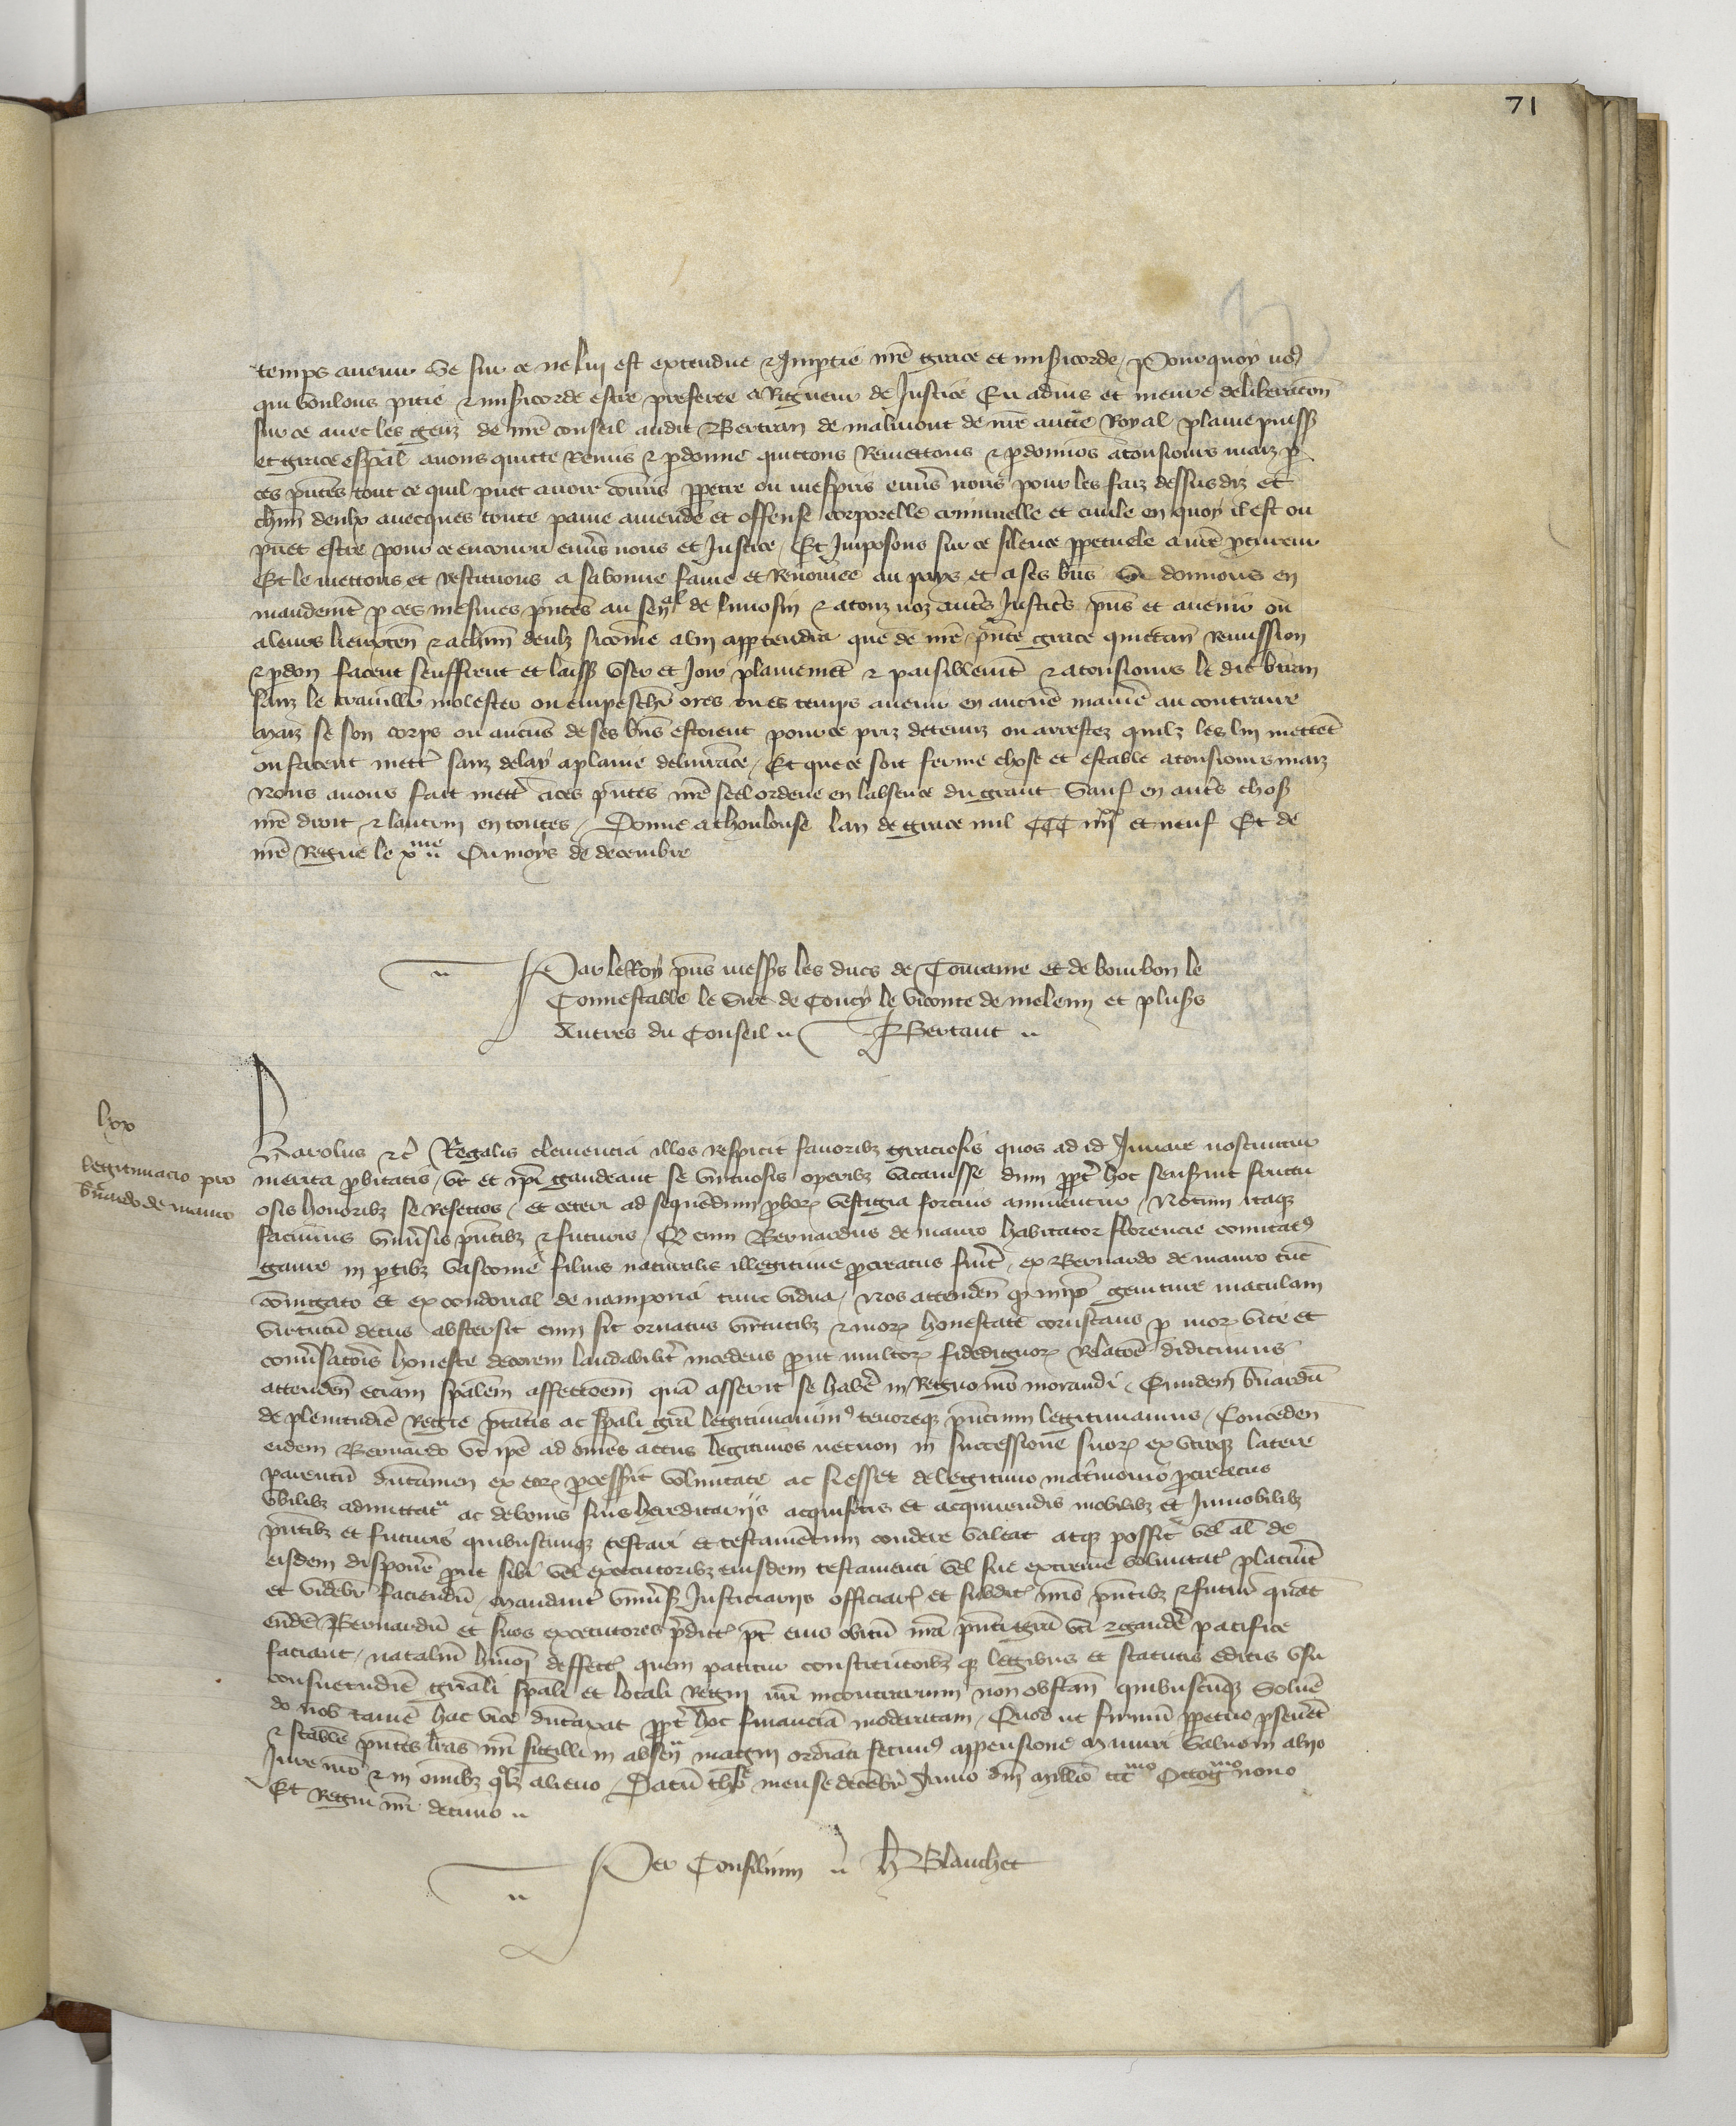 71
temps avenir Se sur ce ne lui est extendue et Impartie nre grace et misicorde / Pour quoy nous
qui voulons pitie et misicorde estre preferee a Rigueur de Justice Eu advis et meure deliberacion
sur ce avec les genz de nre conseil audit Bertran de malmont de nre aucte Royal plaine puissance
et grace espal avons quitte remis et pdonne quictons Remettons et pdonnons a tousiours maiz p
ces pntes tout ce quil puet avoir comis ppetre ou mespris envs nous pour les faiz dessusdiz et
chun deulx avecques toute paine amende et offense corporelle criminelle et civile en quoy il est ou
puet estre pour ce encouru envs nous et Justice / Et Imposons sur ce silence ppetuele a nre pcureur
Et le mettons et restituons a sa bonne fame et Renomee au pays et a ses bns Si donnons en
mandemt p ces mesmes pntes au senal de limosin et a touz noz autes Justices pns et avenir ou
a leurs lieuxten et a chun deulx sicome a lui apptendra que de nre pnte grace quictan remission
et pdon facent seuffrent et laiss user et Joir plainemet et paisiblemt et a tousiours le dit btran
sanz le travillier molester ou empeschr ores ou es temps avenir en aucune maniere au contraire
Maiz se son corps ou aucuns de ses bns estoient pour ce priz detenuz ou arrestez quilz les lui mettet
ou facent mett sanz delay a plaine delivrace / Et que ce soit ferme chose et estable a tousiours maiz
Nous avons fait mett a ces pntes nre seel ordene en labsence du grant Sauf en autes choses
nre droit et lautrui en toutes / Donne a thoulouse lan de grace mil CCC iiijxx et neuf Et de
nre Regne le xme Ou moys de decembre
Par le Roy pns messrs les ducs de Touraine et de bourbon le
Connestable le Sire de Coucy le viconte de meleun et plusrs
Autres du Conseil Bertaut
lxx
legitimacio pro
bnardo de mauro
Karolus etc Regalis clemencia illos respicit favoribz graciosis quos ad id Iuvare noscuntur
merita pbitatis / ut et ipi gaudeant se virtuosis operibz vacavisse dum ppt hoc senserint fructu
osis honoribz se refectos / et ceteri ad sequendum pbor vestigia forcius animentur / Notum itaqz
facimus universis pntibz et futuris / Q cum Bernardus de mauro habitator florencie comitatus
gaure in ptibz vasconie filius naturalis illegitime pcreatus fuit / ex Bernardo de mauro tuc
coniugato et ex condorial de namporia tunc vidua / Nos attenden q in ipo geniture maculam
virtutu decus abstersit cum sit ornatus virtutibz et mor honestate coruscans p mor vite et
conversatois honeste decorem laudabilit incedens put multor fidedignor relatoe didicimus
attenden eciam spalem affectoem qua asserit se habe in Regno nro morandi / Eundem bnardu
de plenitudie Regie ptatis ac spali gra legitimavimus tenoreqz pncium legitimamus / Conceden
eidem Bernardo ut ipe ad omes actus legitimos necnon in successione suor ex utroqz latere
parentu dutamen ex eor pcesserit voluntate ac si esset de legitimo matrimonio pcreatus
ubilibz admittatur ac de bonis suis hereditariis acquisitis et acquirendis mobilibz et Immobilibz
pntibz et futuris quibuscunqz testari et testamentum condere valeat atqz possit vel al de
eisdem dispone put sibi vel executoribz eiusdem testamenti vel sue extreme voluntat placuit
et videbr faciendu / Mandant univs Justiciariis officiar et subdit nris pntibz et futur quat
eude Bernardu et suos executores pdict pt eius obitu nra pnti gra uti et gaude pacifice
faciant / natalium huiusmodi deffectu quem patitur constitutoibz qz legibus et statutis editis usu
consuetudie gnali spali et locali Regni nri in contrarium non obstan quibuscuqz Solve
do nob tame hac vice dutaxat ppt hoc financia moderatam / Quod ut firmu ppetuo pseveret
et stabile pntes lras nri sigilli in absen magni ordinati fecimus appensione muniri Salvo in aliis
Iure nro et in omibz qlz alieno / Datu thole mense decebr Anno dni millio cccmo Octogmo nono
Et Regni nri decimo
Per Consilium H Blanchet